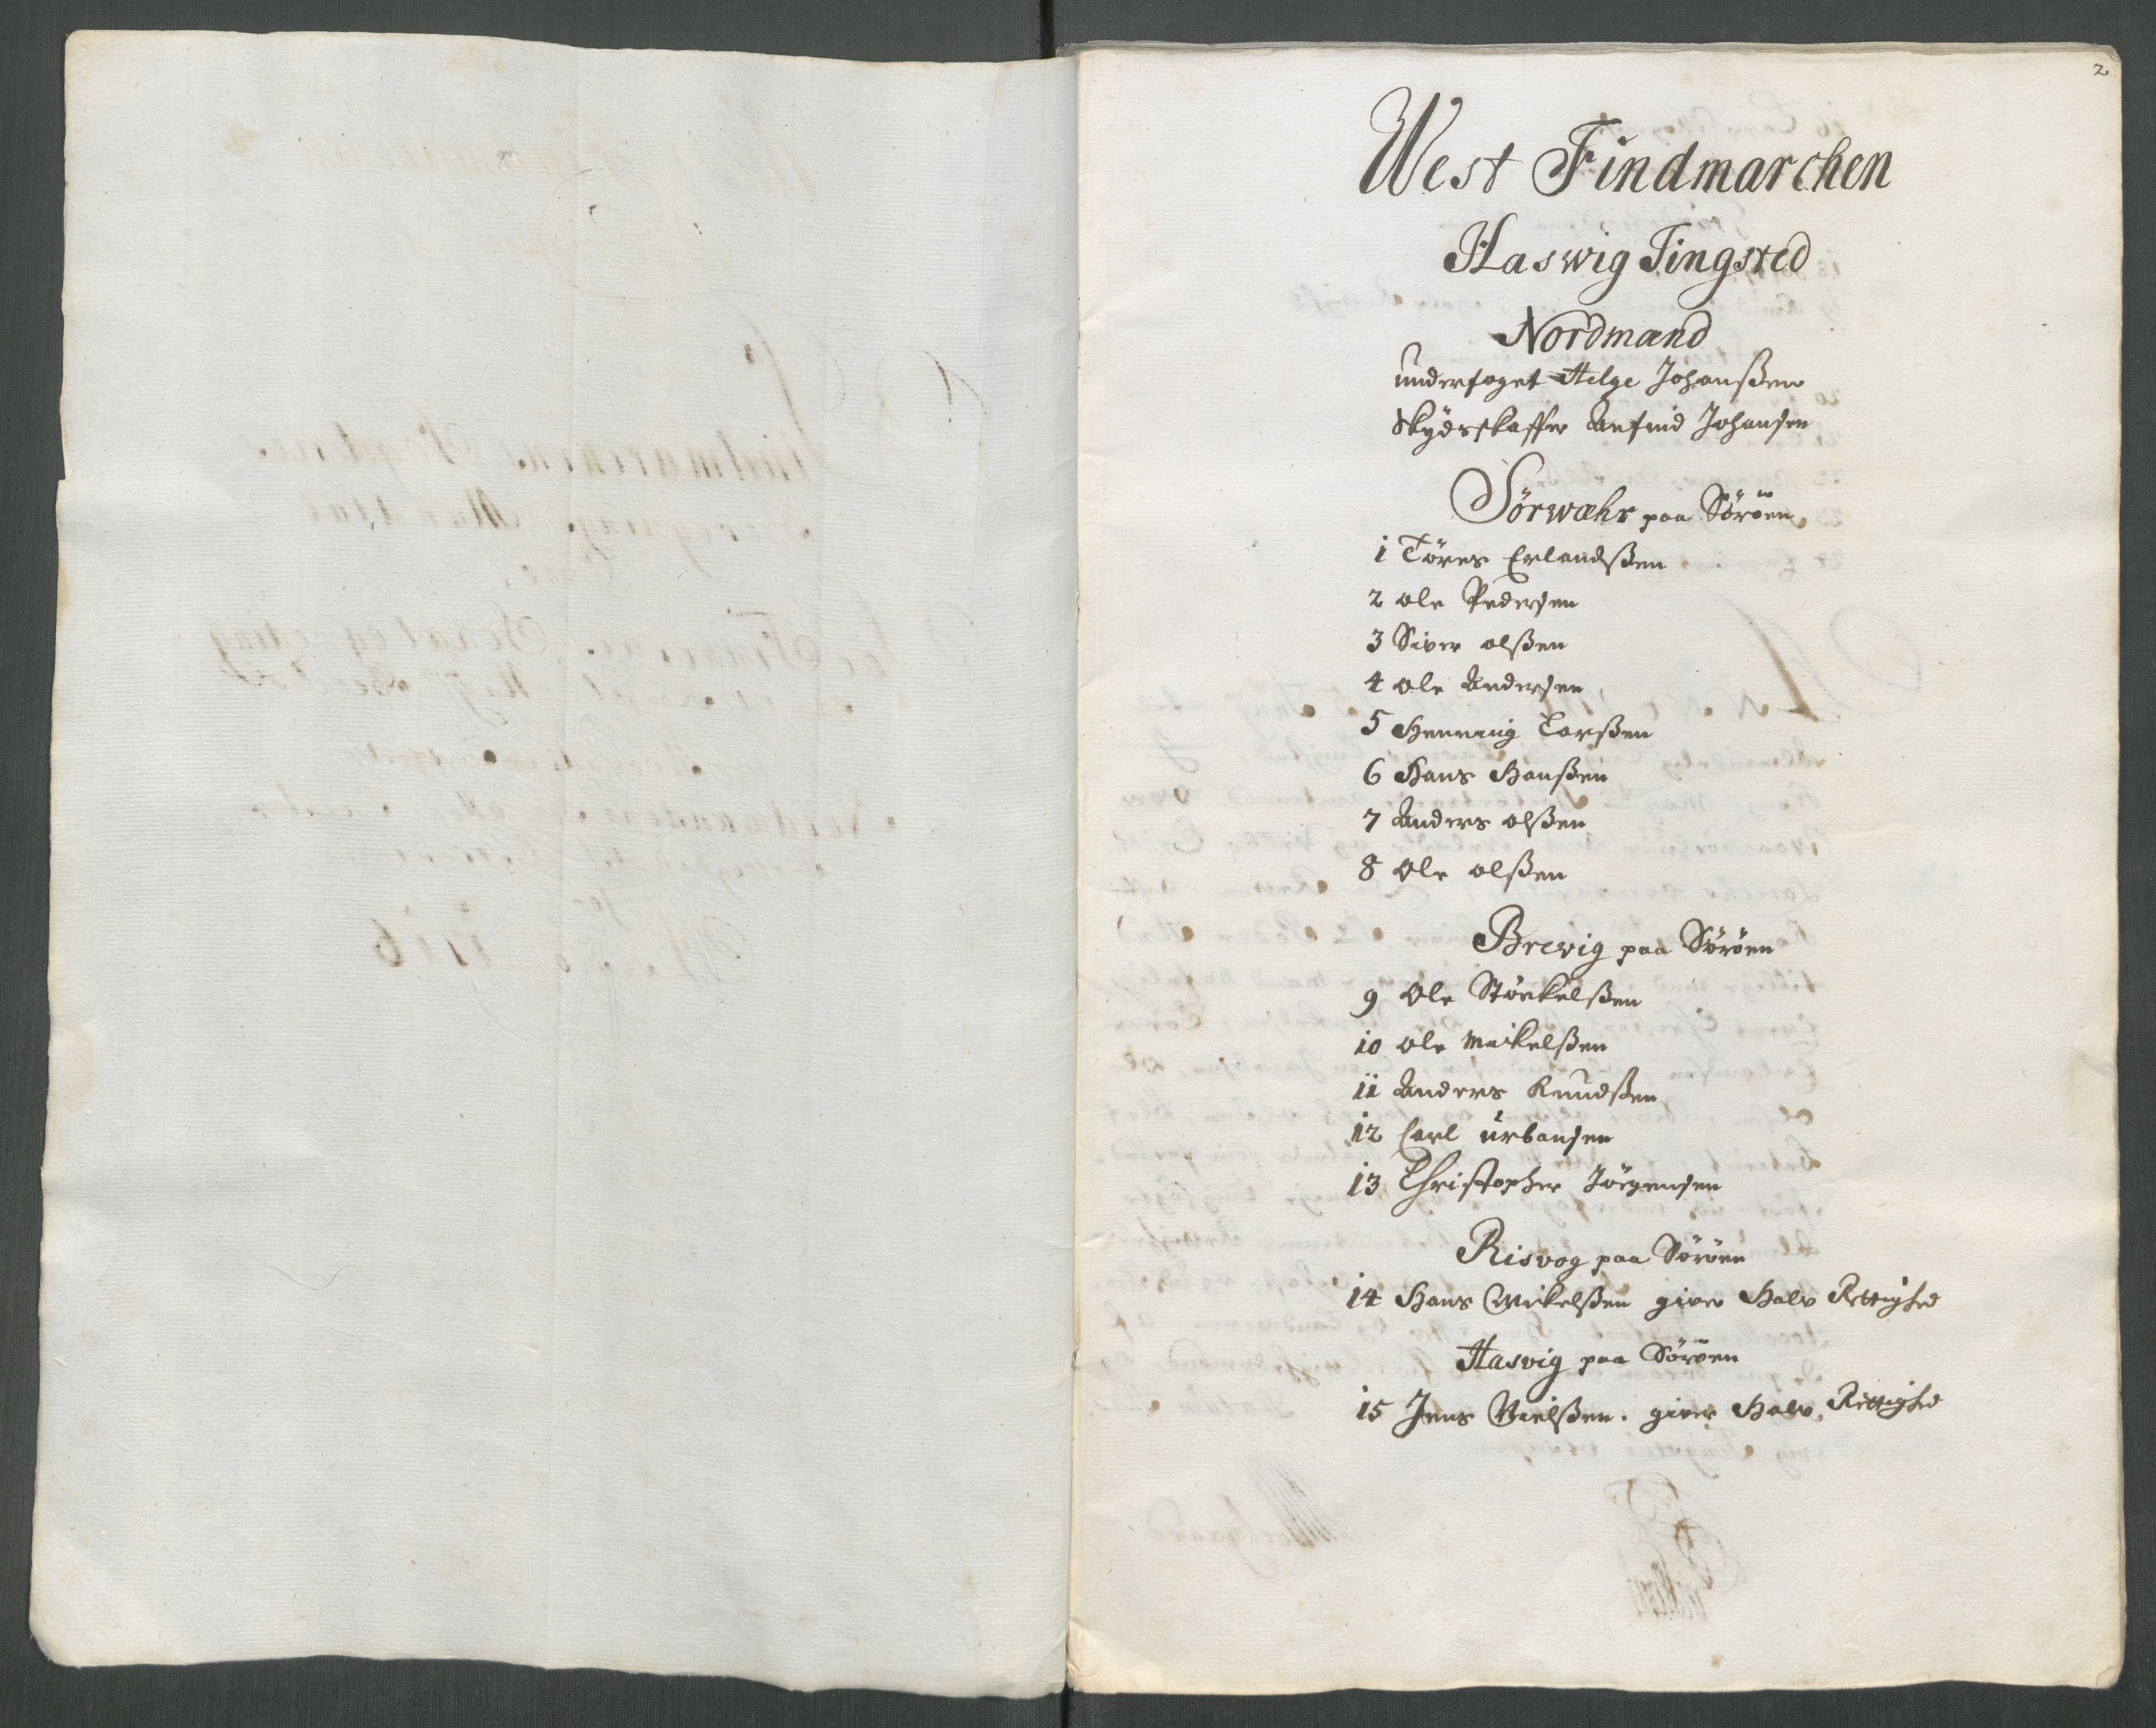 2
West Findmarchen
Haswig Tingsted
Nordmænd
underfoget Helge Johanßen
Skydsskaffer Anfind Johansen
Sørwæhr paa Sørøen
1 Törres Erlandßen
2 Ole Pedersen
3 Siver olßen
4 Ole Andersen
5 Henning Larßen
6 Hans Hanßen
7 Anders olßen
8 Ole olßen
Brevig paa Sørøen
9 Ole Störkelßen
10 Ole Mickelßen
11 Anders Knudßen
12 Carl urbansen
13 Christopher Jörgensen
Risvog paa Sørøen
14 Hans Mickelßen giver Halv Rettighed
Hasvig paa Sørøen
15 Jens Nielßen. giver Halv Rettighed